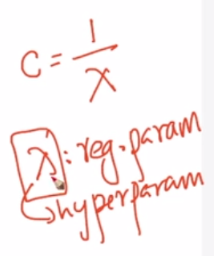 C = 1/λ
λ : reg. param
hyperparam